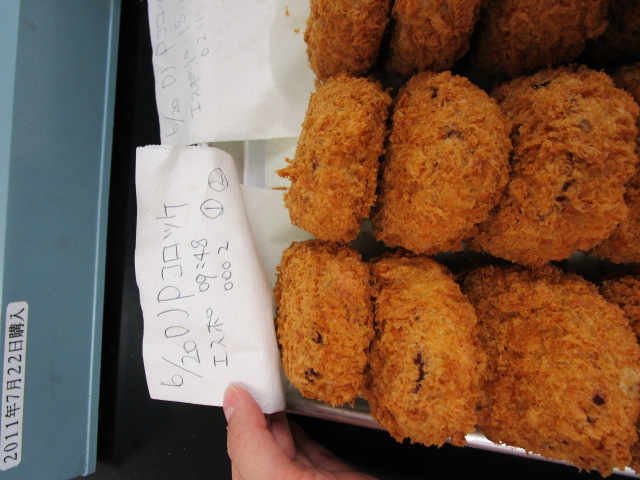 2011年7月22日購入
6/20 DJPコロッケ
エスポ 09:48
0002 ① ②
6/20 DJPコロッ
エスポ 10:18
0211